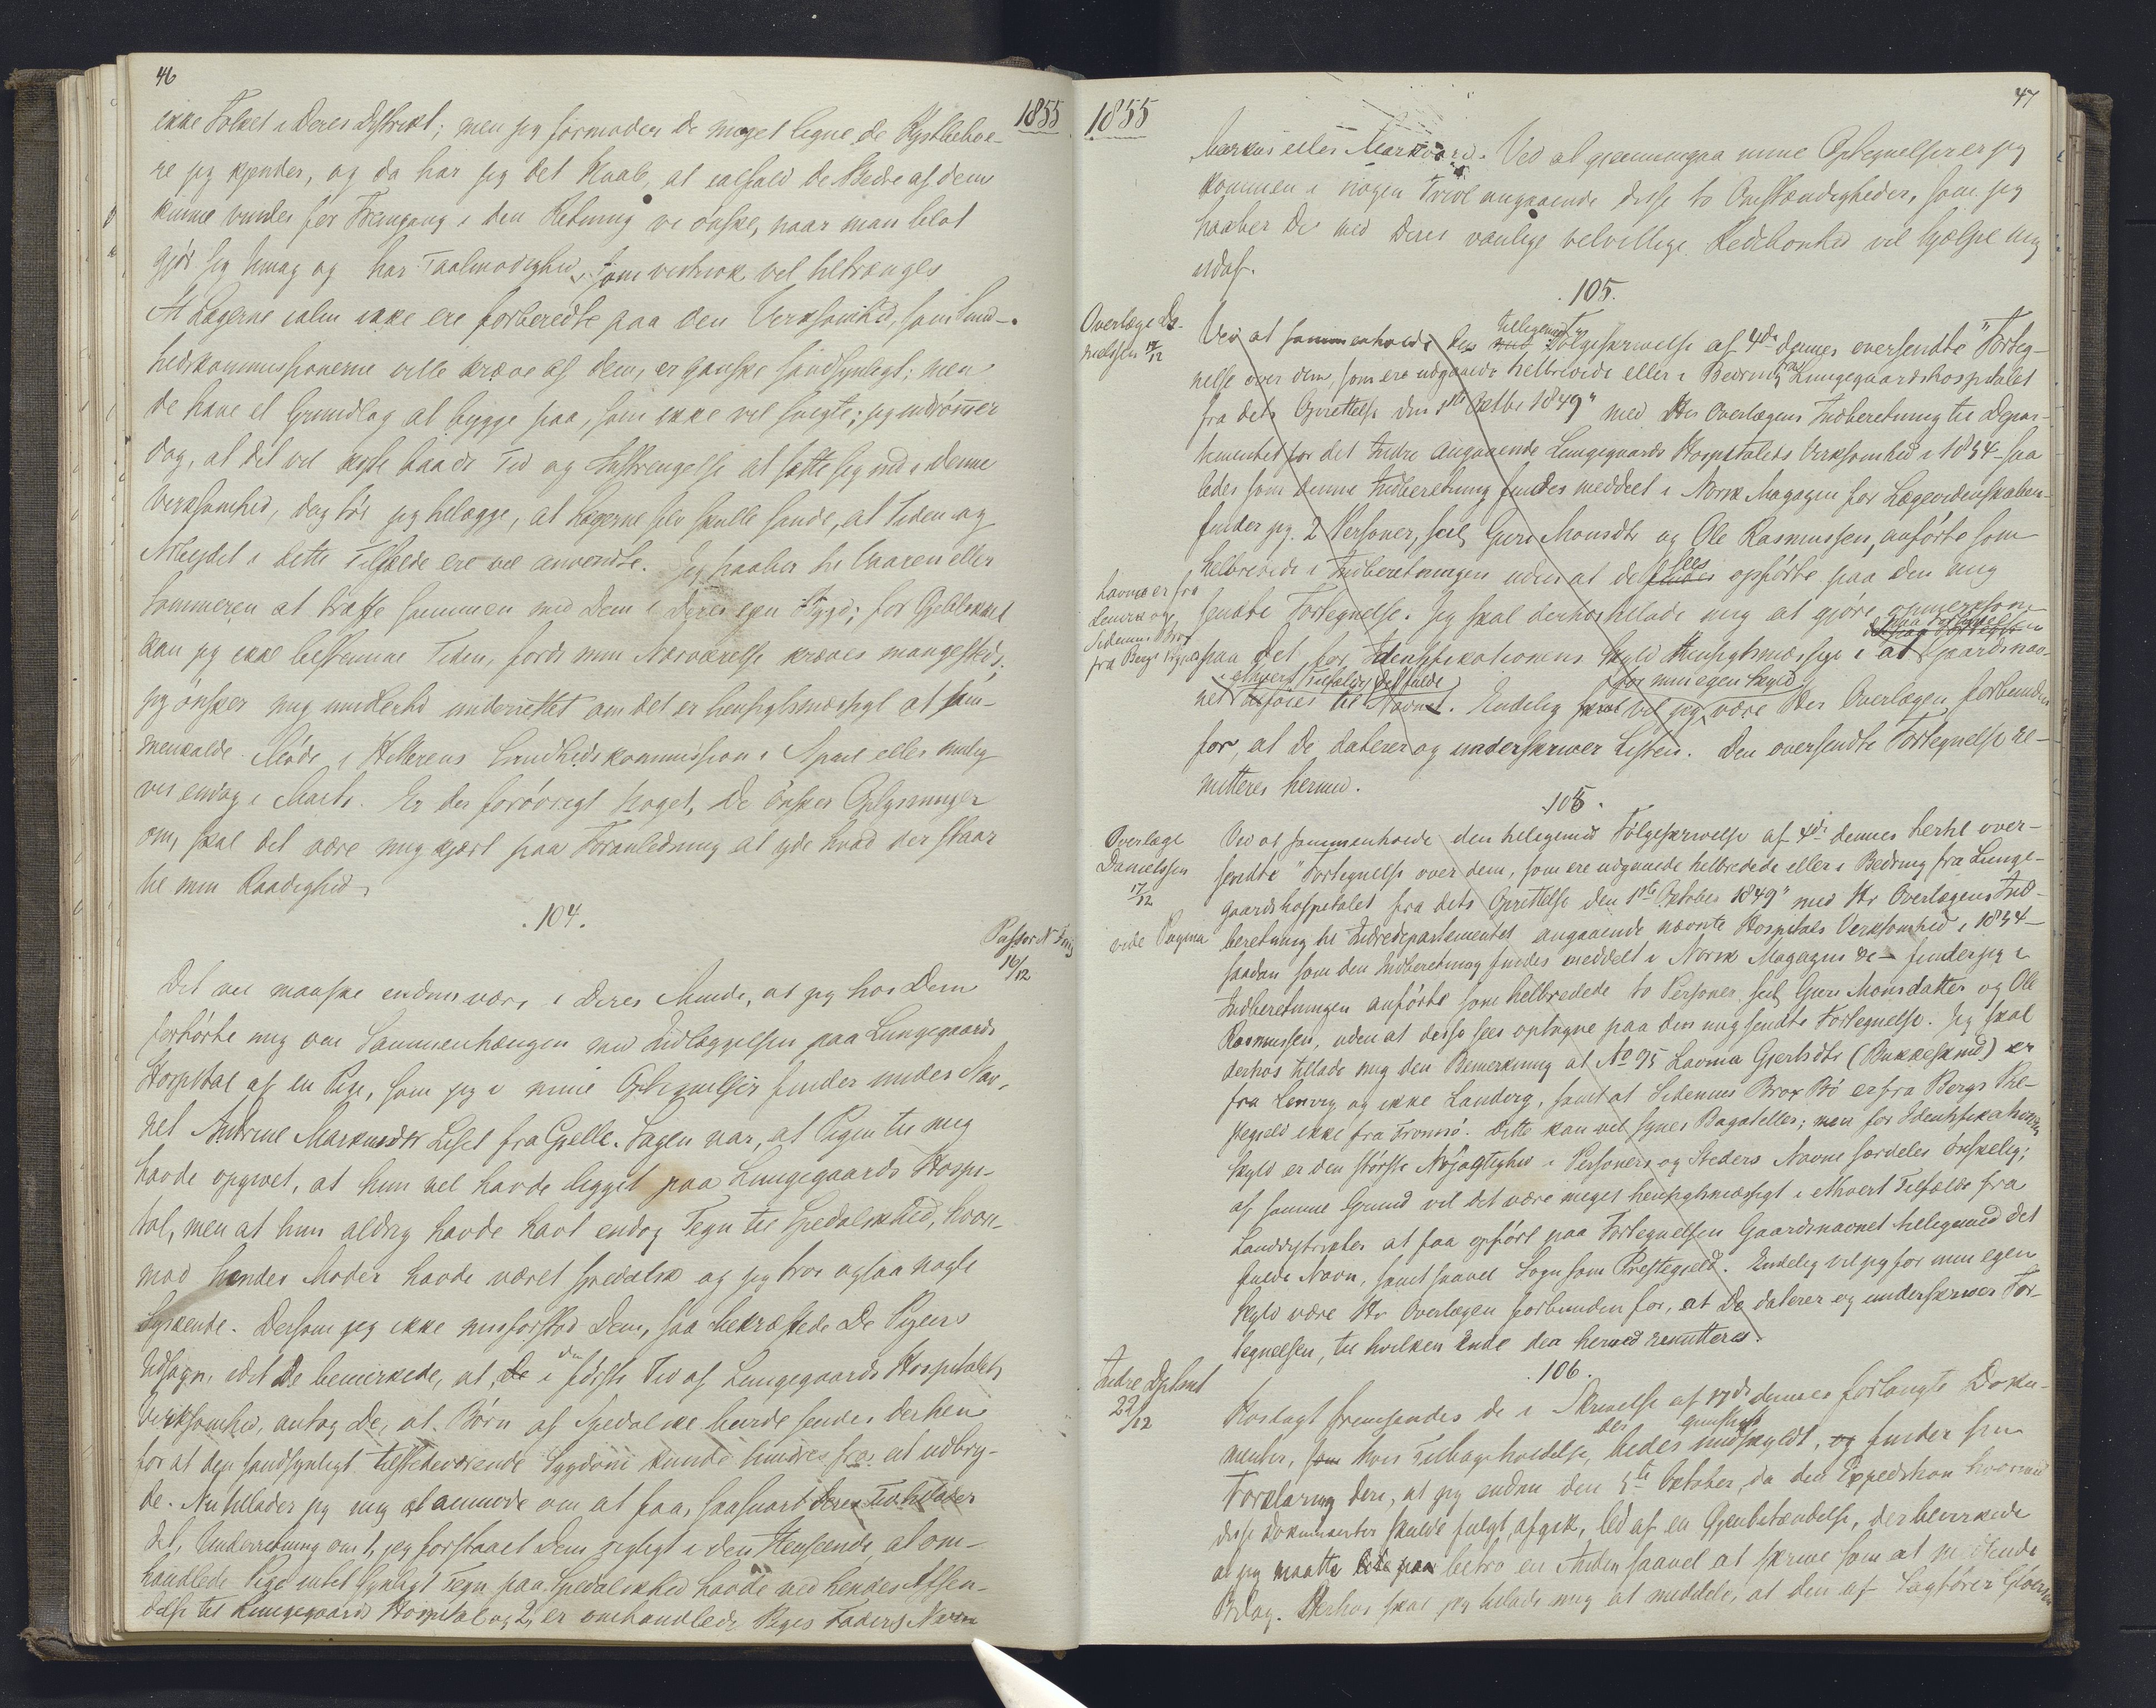 46
1855
ikke Folket i Deres Distrikt; men jeg formoder de meget ligne de Kystbeboe-
re jeg kjender, og da har jeg det Haab, at ialfald de Bedre af dem
kunne vindes for Fremgang i den Retning vi önske, naar man blot
gjör sig Umag og har Taalmodighed, som vistnok vil tiltrænges
At Lægerne ialm ikke ere forberedte paa den Virksomhed, som Sund-
hedskommissionerne ville kræve af dem, er ganske sandsynligt; men
de have et Grundlag at bygge paa, som ikke vil svigte; jeg indrömmer
dog, at det vil koste baade Tid og Anstrengelse at sætte sig ind i denne
Virksomhed, dog tör jeg tilægge, at Lægerne selv skulle sande, at Tiden og
Arbejdet i dette Tilfælde ere vel anvendte. Jeg haaber til Vaaren eller
Sommeren at træffe sammen med Dem i Deres egen Bygd; for Öieblikket
kan jeg ikke bestemme Tiden, fordi min Nærværelse kræves mangesteds;
jeg önsker mig imidlertid underrettet om det er hensigtsmæssigt at sam-
menkalde Möde i Sundhedskommission i April eller mulig
vis endog i Marts. Er der forövrigt Noget, De önsker Oplysninger
om, skal det være mig kjært paa Foranledning at yde hvad der staar
til min Raadighed.
.104.
Pastor
16/12
Det vil maaske endnu være i Deres Minde, at jeg hos Dem
forhörte mig om Sammenhængen med Indlæggelsen paa Lungegaards
Hospital af en Pige, som jeg i mine Optegnelser finder under Nav-
net Andrine Markusdtr Liset fra Gjelle. Sagen var, at Pigen til mig
havde opgivet, at hun vel havde ligget paa Lungegaards Hospi-
tal, men at hun aldrig havde havt endog Tegn til Spedalskhed, hvori-
mod hendes Moder havde været spedalsk og jeg tror ogsaa nogle
Syskende. Dersom jeg ikke misforstod Dem, saa bekræftede De Pigens
Udsagn, idet De bemerkede, at De i den förste Tid af Lungegaards Hospitalets
Virksomhed, antog De, at Börn af Spedalske burde sendes derhen
for at den sandsynligt tilstedeværende Sygdom kunde hindres fra at udbry-
de. Nu tillader jeg mig at anmode om at faa, saasnart Deres Tid tillader
det, Underretning om 1, jeg forstaaet Dem rigtigt i den Henseende, at om-
handlede Pige intet synligt Tegn paa Spedalskhed havde ved hendes Afsen-
delse til Lungegaards Hospital og 2, er omhandlede Piges Faders Navn
1855
47
Markus eller Markvard. Ved at gjennemgaa mine Optegnelser er jeg
kommen i nogen Tvivl angaaende disse to Omstændigheder, som jeg
haaber De med Deres vanlige velvillige Redebonhed vil hjælpe mig
udaf.
.105.
Overlæge Da-
nielssen 17/12
Ved at sammenholde den tilligemed Fölgeskrivelse af 4de dennes oversendte "Forteg-
nelse over dem, som ere udgaaede helbredede eller i Bedring fra Lungegaardshospitalet
fra dets Oprettelse den 1ste Oktbr 1849" med Hr Overlægens Indberetning til Depar-
tementet for det Indre angaaende Lungegaards Hospitalets Virksomhed i 1854 – saa
ledes som denne Indberetning findes meddelt i Norsk Magazin for Lægevidenskaben –
finder jeg 2 Personer, scil. Guri Monsdtr og Ole Rasmussen, anförte som
helbredede i Indberetningen uden at de findes sees opförte paa den mig
Lavina er fra
Lenvik og
Sidenius Brox
fra Bergs Prgjeld
sendte Fortegnelse. Jeg skal derhos tillade mig at gjöre opmerksom
paa det for Identifikationens Skyld Hensigtsmæssige i at paa Fortegnelsen Gaardsnav-
net i ethvert Tilfælde tilföies til det fulde Navn. Endelig skal vil jeg for min egen Skyld være Hr Overlægen forbunden
for, at De daterer og underskriver Listen. Den oversendte Fortegnelse re-
mitteres hermed.
.105.
Overlæge
Danielssen
17/12
vide Pagina
Ved at sammenholde den tilligemed Fölgeskrivelse af 4de dennes hertil over-
sendte "Fortegnelse over dem, som ere udgaaede helbredede eller i Bedring fra Lunge-
gaardshospitalet fra dets Oprettelse den 1ste Oktober 1849" med Hr Overlægens Ind-
beretning til Indredepartementet angaaende nævnte Hospitals Virksomhed i 1854 –
saadan som den Indberetning findes meddelt i Norsk Magazin &c – finder jeg i
Indberetningen anförte som helbredede to Personer, scil. Guri Monsdatter og Ole
Rasmussen, uden at disse sees optagne paa den mig sendte Fortegnelse. Jeg skal
derhos tillade mig den Bemerkning at No 95 Lavina Gjertsdtr (Bukkeskind) er
fra Lenvig og ikke Landvig, samt at Sidenius Brox Bö er fra Bergs Præ-
stegjeld ikke fra Tromsö. Dette kan vel synes Bagateller; men for Identifikationens
Skyld er den störste Nöjagtighed i Personers og Steders Navne særdeles önskelig;
af samme Grund vil det være meget hensigtsmæssigt i ethvert Tilfælde fra
Landdistrikter at faa opfört paa Fortegnelsen Gaardsnavnet tilligemed det
fulde Navn, samt saavel Sogn som Præstegjeld. Endelig vil jeg for min egen
Skyld være Hr Overlægen forbunden for, at De daterer og underskriver For-
tegnelsen, til hvilken Ende den herved remitteres.
.106.
Indre Dptmt
22/12
Hoslagt fremsendes de i Skrivelse af 17de dennes forlangte Doku-
menter, som hvis Tilbageholdelse, der bedes gunstigst undskyldt, og finder sin
Forklaring deri, at jeg endnu den 5te Oktober, da den Expedition hvormed
disse Dokumenter skulde fulgt, afgik, led af en Öjenbetændelse, der bevirkede
at jeg maatte betro en Anden saavel at skrive som at
Bilag. Derhos skal jeg tillade mig at meddele, at den af Sagförer